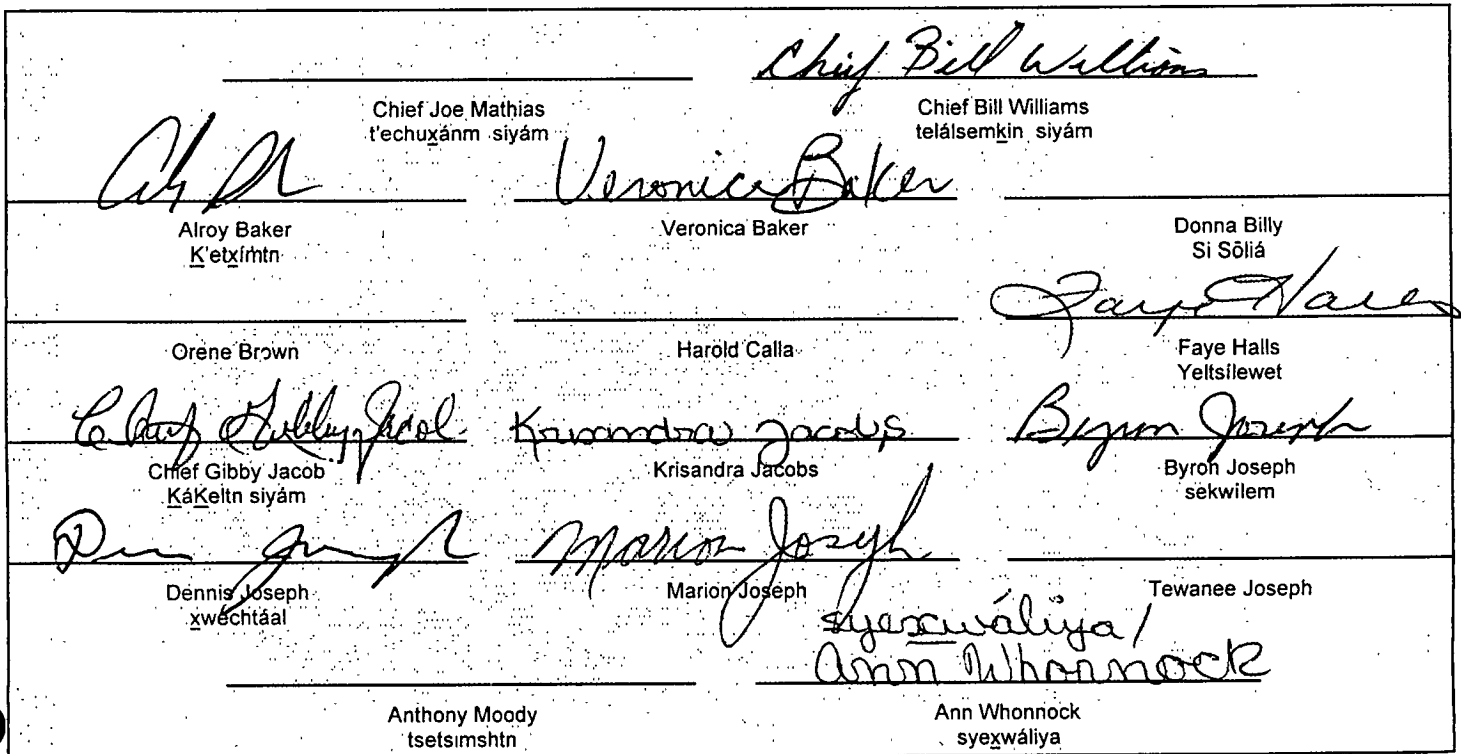 Chief Bill Williams
Chief Joe Mathias
t'echux̲ánm siyám
Chief Bill Williams
telálsemk̲in siyám
Veronica Baker
Alroy Baker
K̲'etx̲ímtn
Veronica Baker
Donna Billy
Si Sōliá
Faye Halls
Orene Brown
Harold Calla
Faye Halls
Yeltsilewet
Chief Gibby Jacob
Krisandra Jacobs
Byron Joseph
Chief Gibby Jacob
K̲áK̲eltn siyám
Krisandra Jacobs
Byron Joseph
sekwilem
Marion Joseph
Dennis Joseph
x̲wechtáal
Marion Joseph
Tewanee Joseph
syex̲wáliya /
Ann Whonnock
Anthony Moody
tsetsimshtn
Ann Whonnock
syex̲wáliya